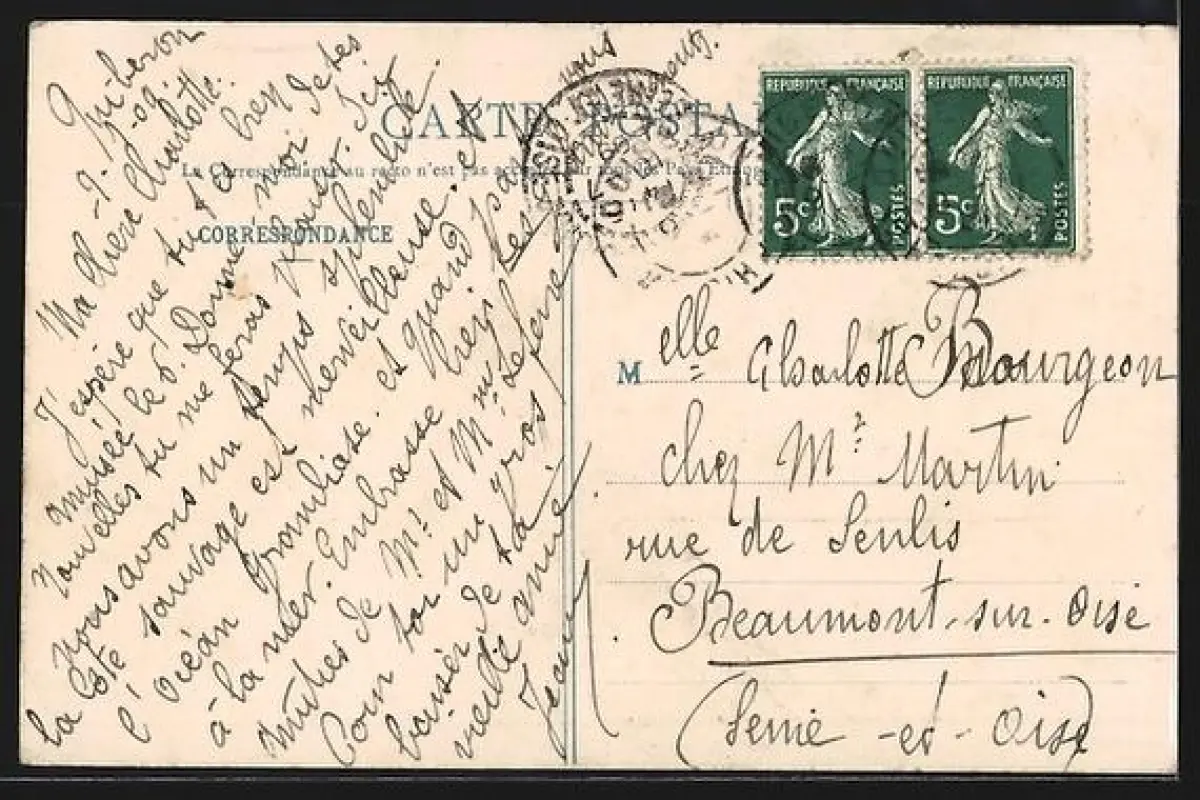 Quiberon
-9-09.
Ma Chère Charlotte.
J'espère que tu t'es bien
amusée le 6. Donne moi de tes
nouvelles tu me feras plaisir.
Nous avons un temps splendide.
la côte sauvage est merveilleuse. et
l'océan grandiose. et quand
à la mer. Embrasse
de Mr. et Mme Lefevre
pour toi un gros
baiser de ta
vieille amie.
Jeanne
CARTE POSTALE
La Correspondance au recto n'est pas acceptée par tous les Pays Etrangers
CORRESPONDANCE
REPUBLIQUE FRANÇAISE
5c
POSTES
REPUBLIQUE FRANÇAISE
5c
POSTES
Melle Charlotte Bourgeon
chez Mr. Martin
rue de Senlis
Beaumont-sur-Oise
(Seine-et-Oise)